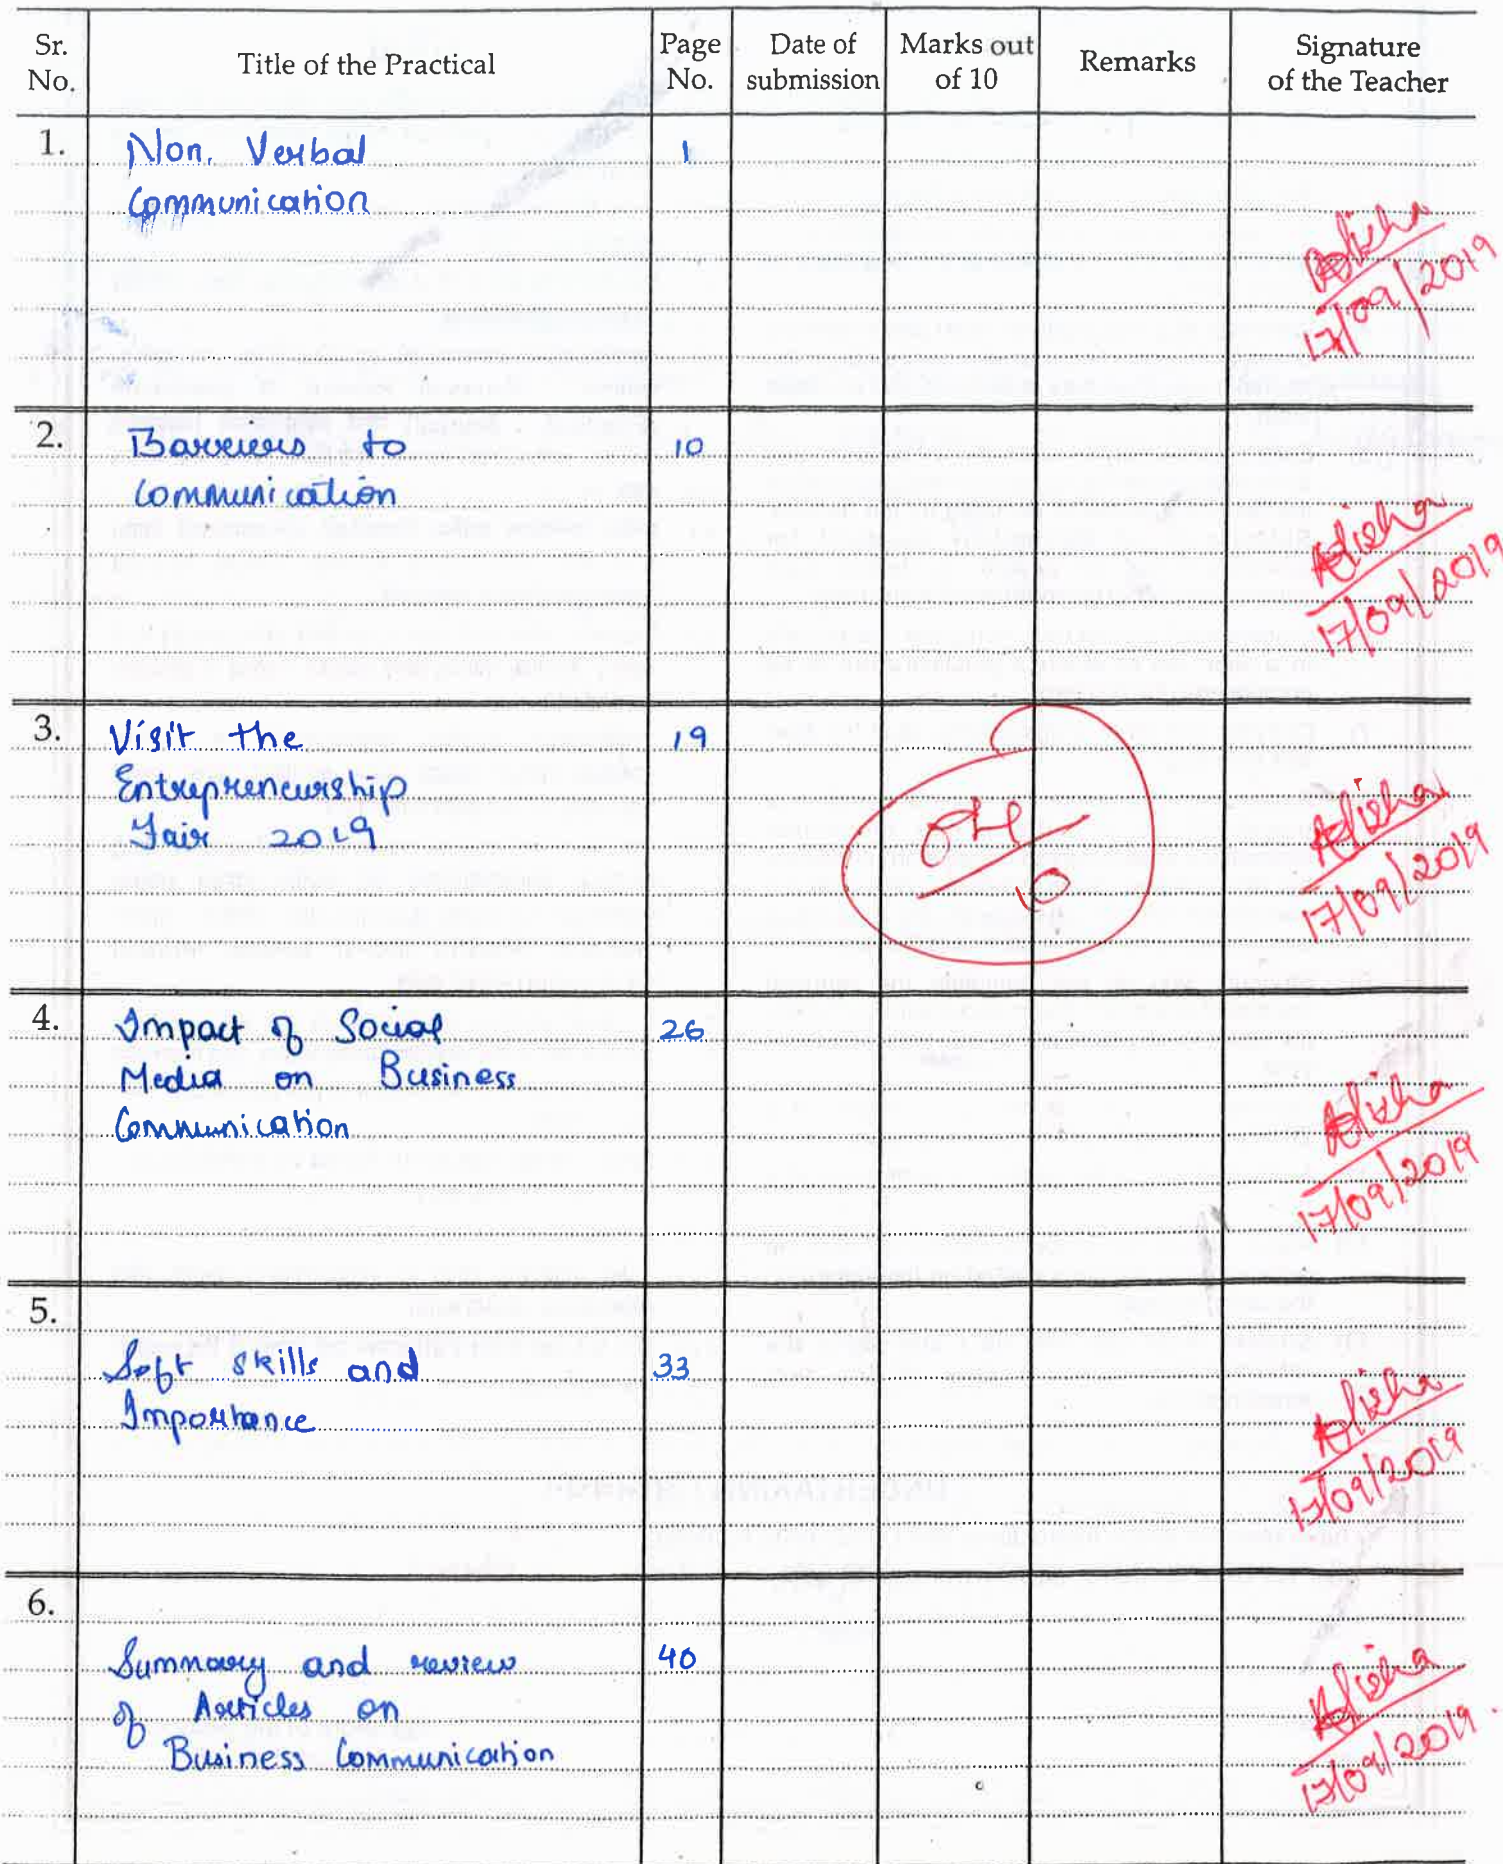 Sr. No. Title of the Practical Page No. Date of submission Marks out of 10 Remarks Signature of the Teacher
1. Non. Verbal 1
Communication
Alisha
17/09/2019
2. Barriers to 10
Communication
Alisha
17/09/2019
3. Visit the 19
Entrepreneurship
Fair 2019
04/10
Alisha
17/09/2019
4. Impact of Social 26
Media on Business
Communication
Alisha
17/09/2019
5.
Soft skills and 33
Importance
Alisha
17/09/2019
6.
Summary and review 40
of Articles on
Business Communication
Alisha
17/09/2019